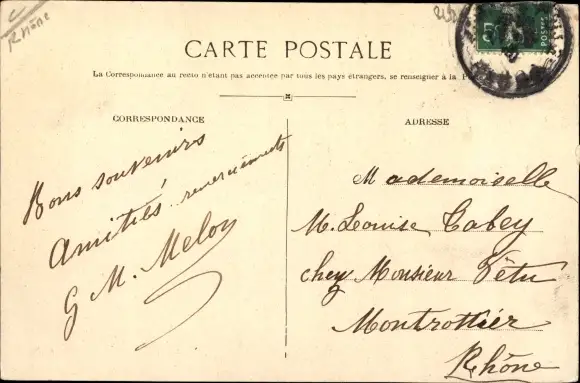 Rhône
CARTE POSTALE
La Correspondance au recto n'étant pas acceptée par tous les pays étrangers, se renseigner à la
CORRESPONDANCE
ADRESSE
5c
POSTES
Bons souvenirs
Amitiés. remerciements
G M. Meloy
Mademoiselle
M. Louise Cabey
chez Monsieur Têtu
Montrottier
Rhône